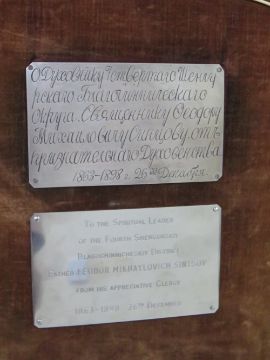 Духовнику Четвертаго Шенку
рскаго Благочинническаго
Округа. Священнику Феодору
Михайловичу Синцову, отъ
признательнаго Духовенства
1863–1898 г. 26го Декабря.
To the Spiritual Leader
of the Fourth Shenkurskiy
Blagochinnicheskiy District
Father Feodor Mikhaylovich Sintsov
from his appreciative Clergy
1863–1898 26th December